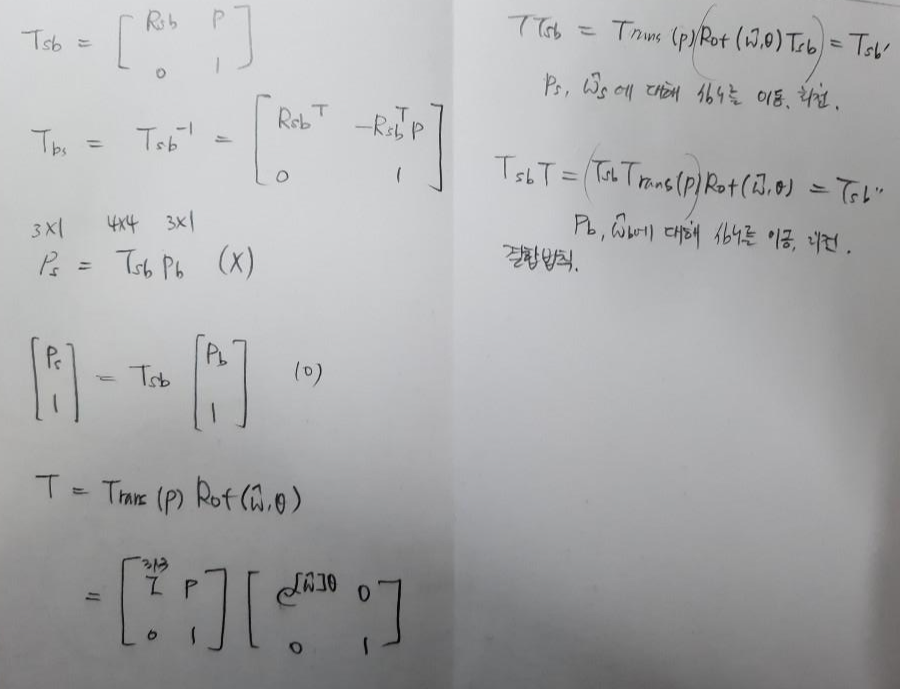 Tsb = [ Rsb P
0 1 ]
Tbs = Tsb⁻¹ = [ Rsbᵀ -Rsbᵀp
0 1 ]
3x1 4x4 3x1
Ps = Tsb Pb (X)
[ Ps
1 ] = Tsb [ Pb
1 ] (O)
T = Trans(p) Rot(ŵ,θ)
3x3
= [ I P
0 1 ] [ e^[ŵ]θ 0
0 1 ]
TTsb = Trans(p)(Rot(ŵ,θ)Tsb) = Tsb'
Ps, ŵs에 대해 {b}를 이동, 회전.
TsbT = (TsbTrans(p))Rot(ŵ,θ) = Tsb''
Pb, ŵb에 대해 {b}를 이동, 회전.
결합법칙.